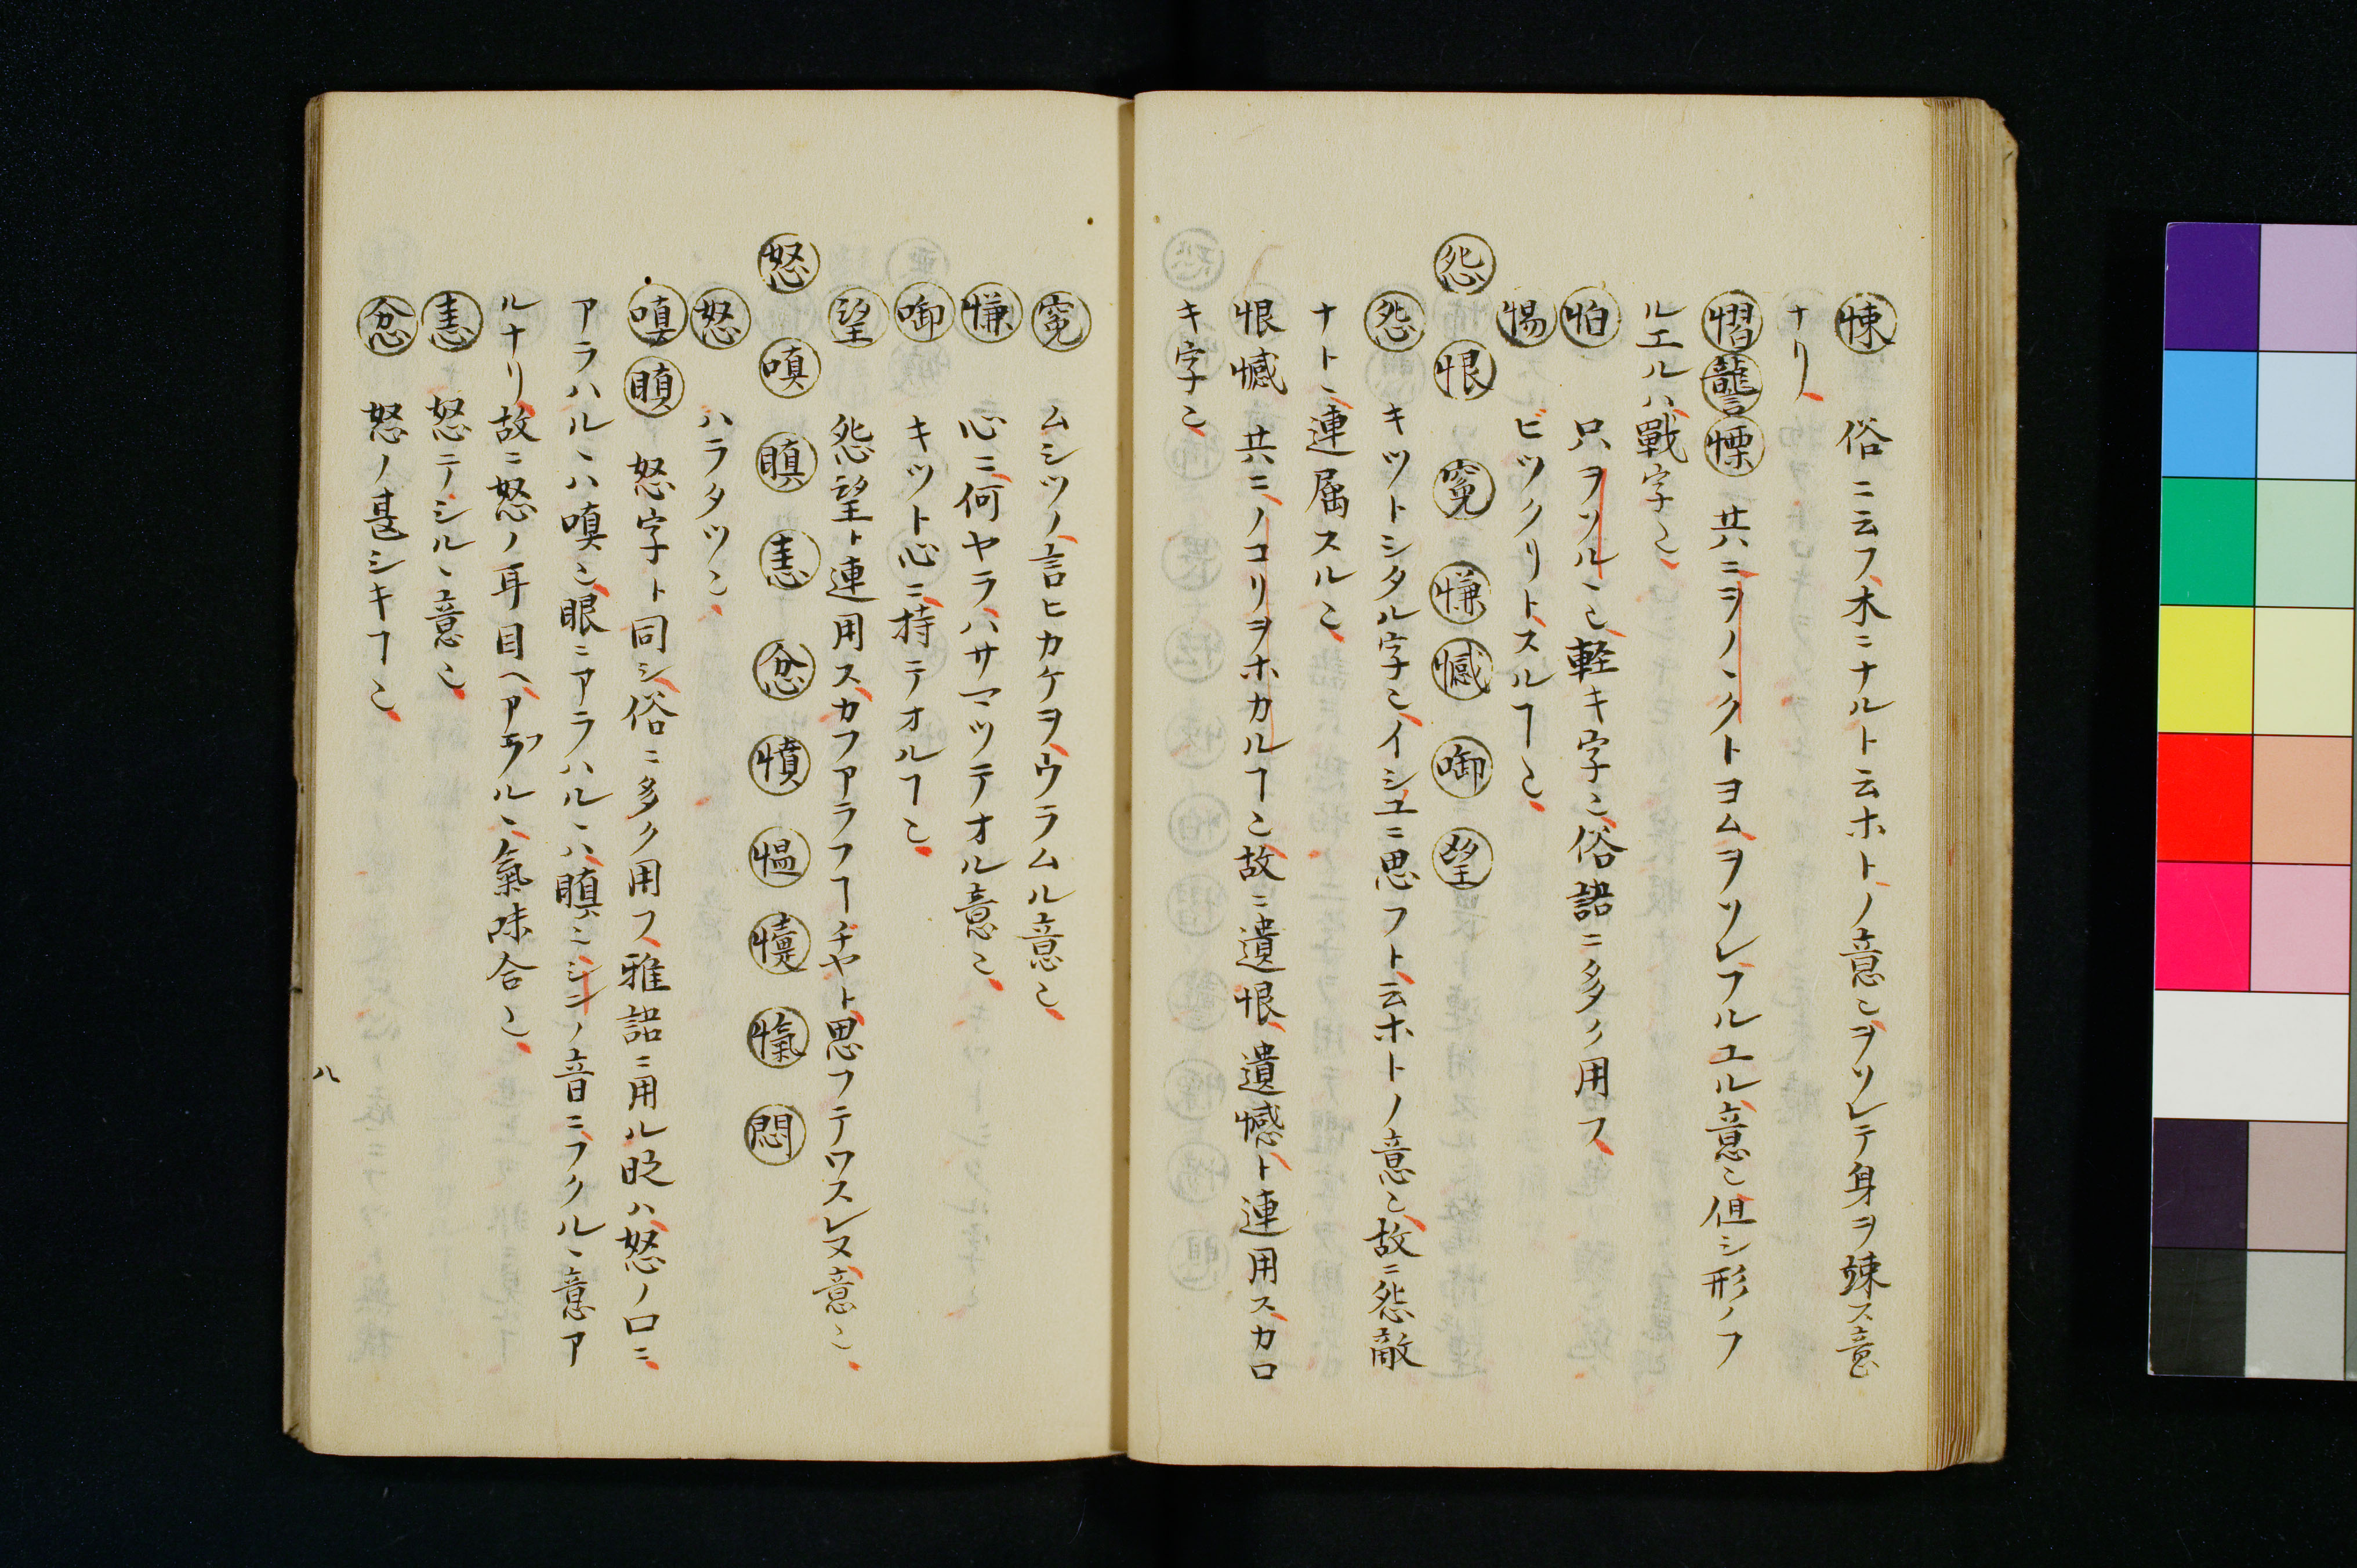 悚 俗ニ云フ木ニナルト云ホトノ意也ヲソレテ身ヲ竦ス意
ナリ
慴讋慄 共ニヲノヽクトヨムヲソレフルエル意也但シ形ノフ
ルエルハ戰字也
怕 只ヲソルヽ也軽キ字也俗語ニ多ク用フ
惕 ビツクリトスルヿ也
怨 恨 寃 慊 憾 啣 望
怨 キツトシタル字也イシユニ思フト云ホトノ意也故ニ怨敵
ナトヽ連属スル也
恨憾 共ニノコリヲホカルヿ也故ニ遺恨遺憾ト連用スカロ
キ字也
寃 ムシツノ言ヒカケヲウラムル意也
慊 心ニ何ヤラハサマツテオル意也
啣 キツト心ニ持テオルヿ也
望 怨望ト連用スカフアラフヿヂヤト思フテワスレヌ意也
怒 嗔 瞋 恚 忿 憤 愠 懥 愾 悶
怒 ハラタツ也
嗔瞋 怒字ト同シ俗ニ多ク用フ雅語ニ用ル時ハ怒ノ口ニ
アラハルヽハ嗔也眼ニアラハルヽハ瞋也シンノ音ニフクルヽ意ア
ルナリ故ニ怒ノ耳目ヘアラハルヽ氣味合也
恚 怒テシルヽ意也
忿 怒ノ甚シキヿ也
八